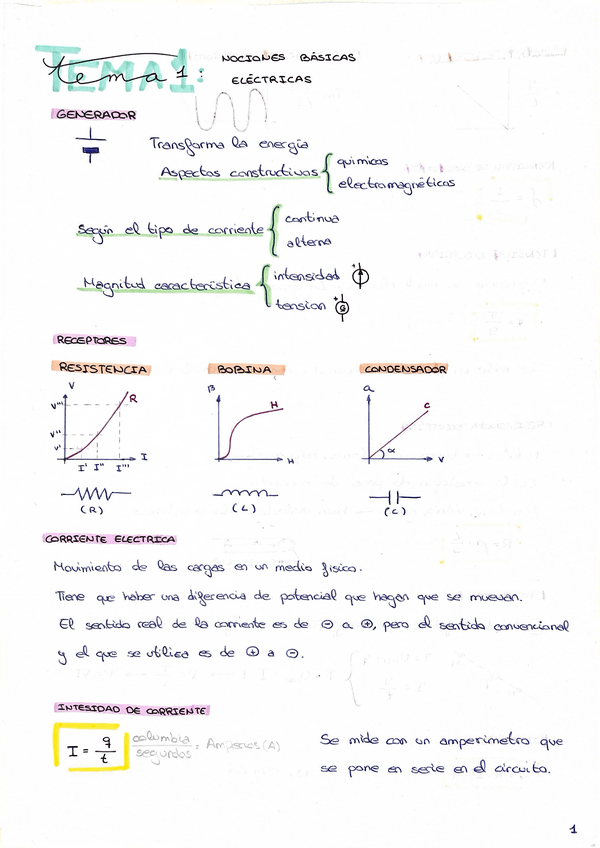 Tema 1: NOCIONES BÁSICAS
ELÉCTRICAS
GENERADOR
Transforma la energía
Aspectos constructivos { químicos
electromagnéticos
Según el tipo de corriente { continua
alterna
Magnitud característica { intensidad +
tension + G
RECEPTORES
RESISTENCIA BOBINA CONDENSADOR
V R V''' V'' V' I' I'' I''' I
B H H
Q C α V
(R) (L) (C)
CORRIENTE ELECTRICA
Movimiento de las cargas en un medio físico.
Tiene que haber una diferencia de potencial que hagan que se muevan.
El sentido real de la corriente es de ⊖ a ⊕, pero el sentido convencional
y el que se utiliza es de ⊕ a ⊖.
INTESIDAD DE CORRIENTE
I = q/t columbia/segundos = Amperios (A)
Se mide con un amperímetro que
se pone en serie en el circuito.
1